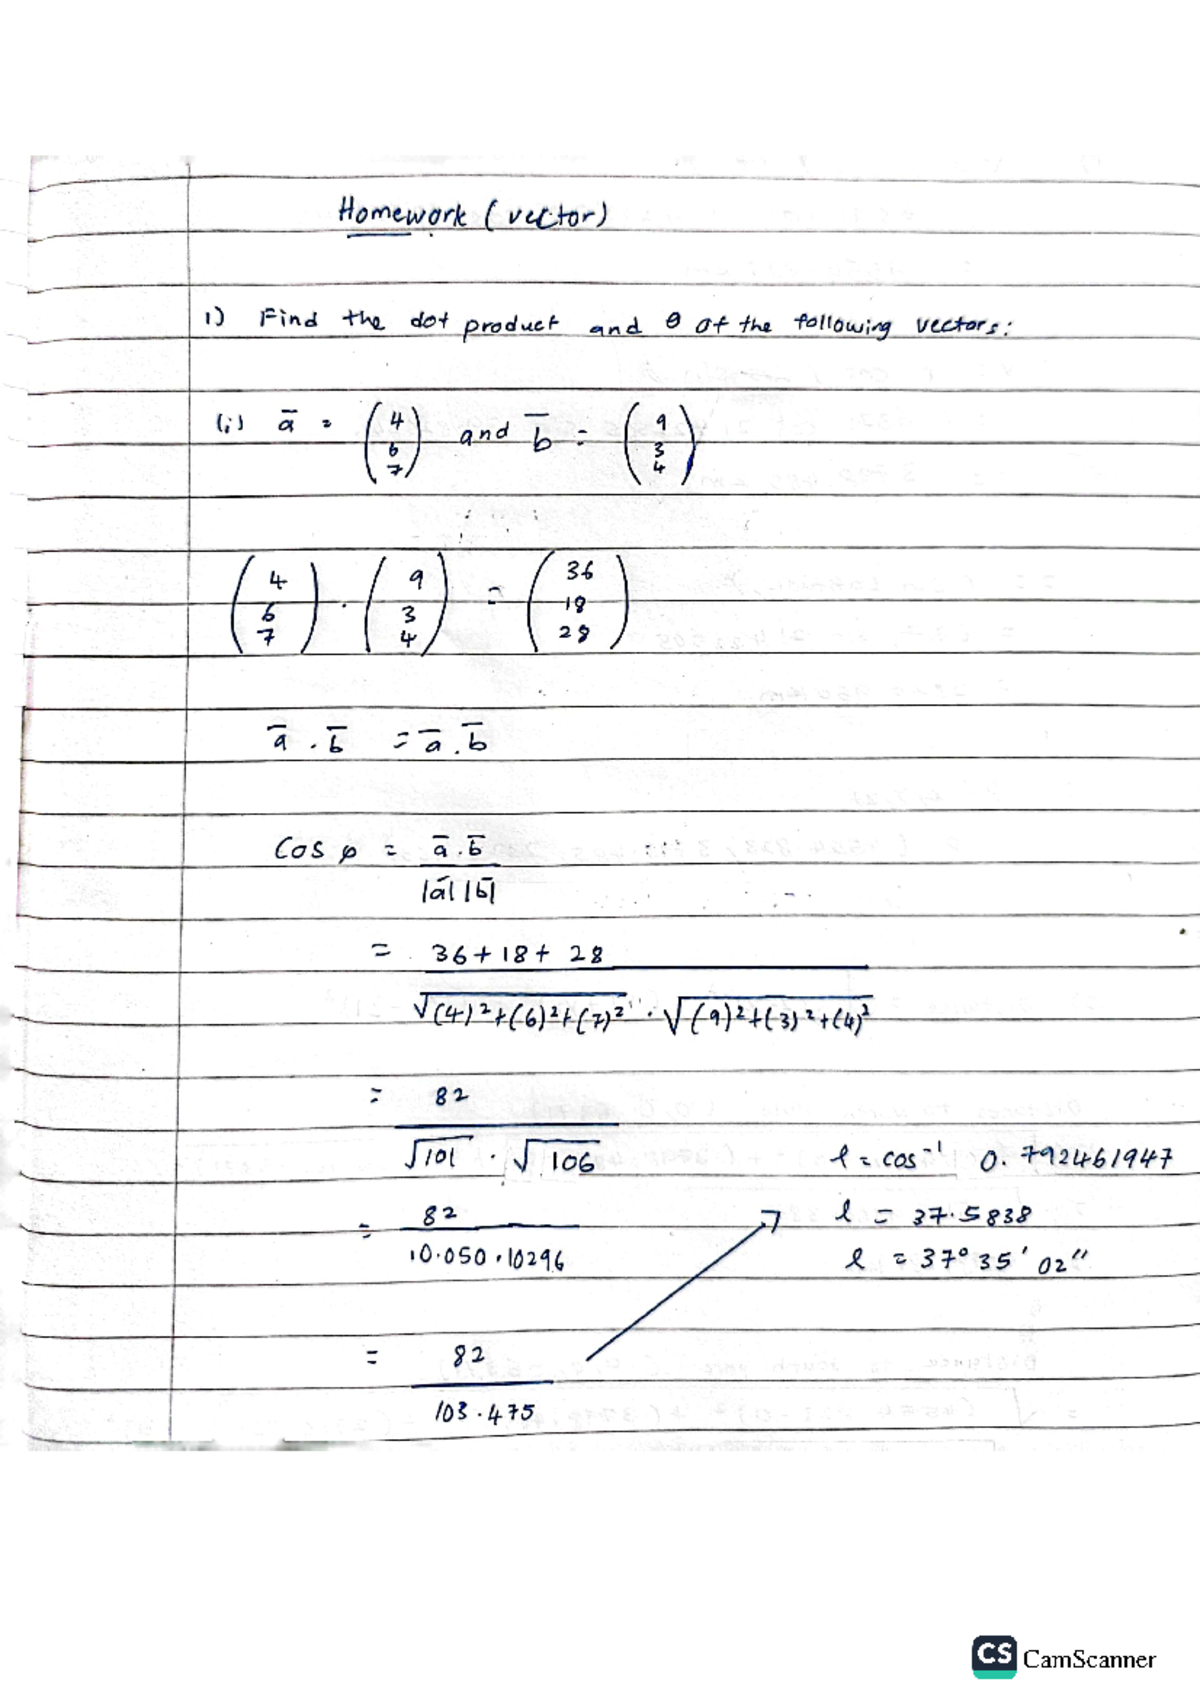 Homework (vector)
1) Find the dot product and θ of the following vectors:
(i) a̅ = (4 6 7) and b̅ = (9 3 4)
(4 6 7) . (9 3 4) = (36 18 28)
a̅ . b̅ = a̅ . b̅
Cos φ = a̅ . b̅
|a̅| |b̅|
= 36 + 18 + 28
√(4)²+(6)²+(7)² . √(9)²+(3)²+(4)²
= 82
√101 . √106
l = cos⁻¹ 0.792461947
= 82
10.050 . 10296
l = 37.5838
l = 37° 35' 02"
= 82
103.475
CS CamScanner